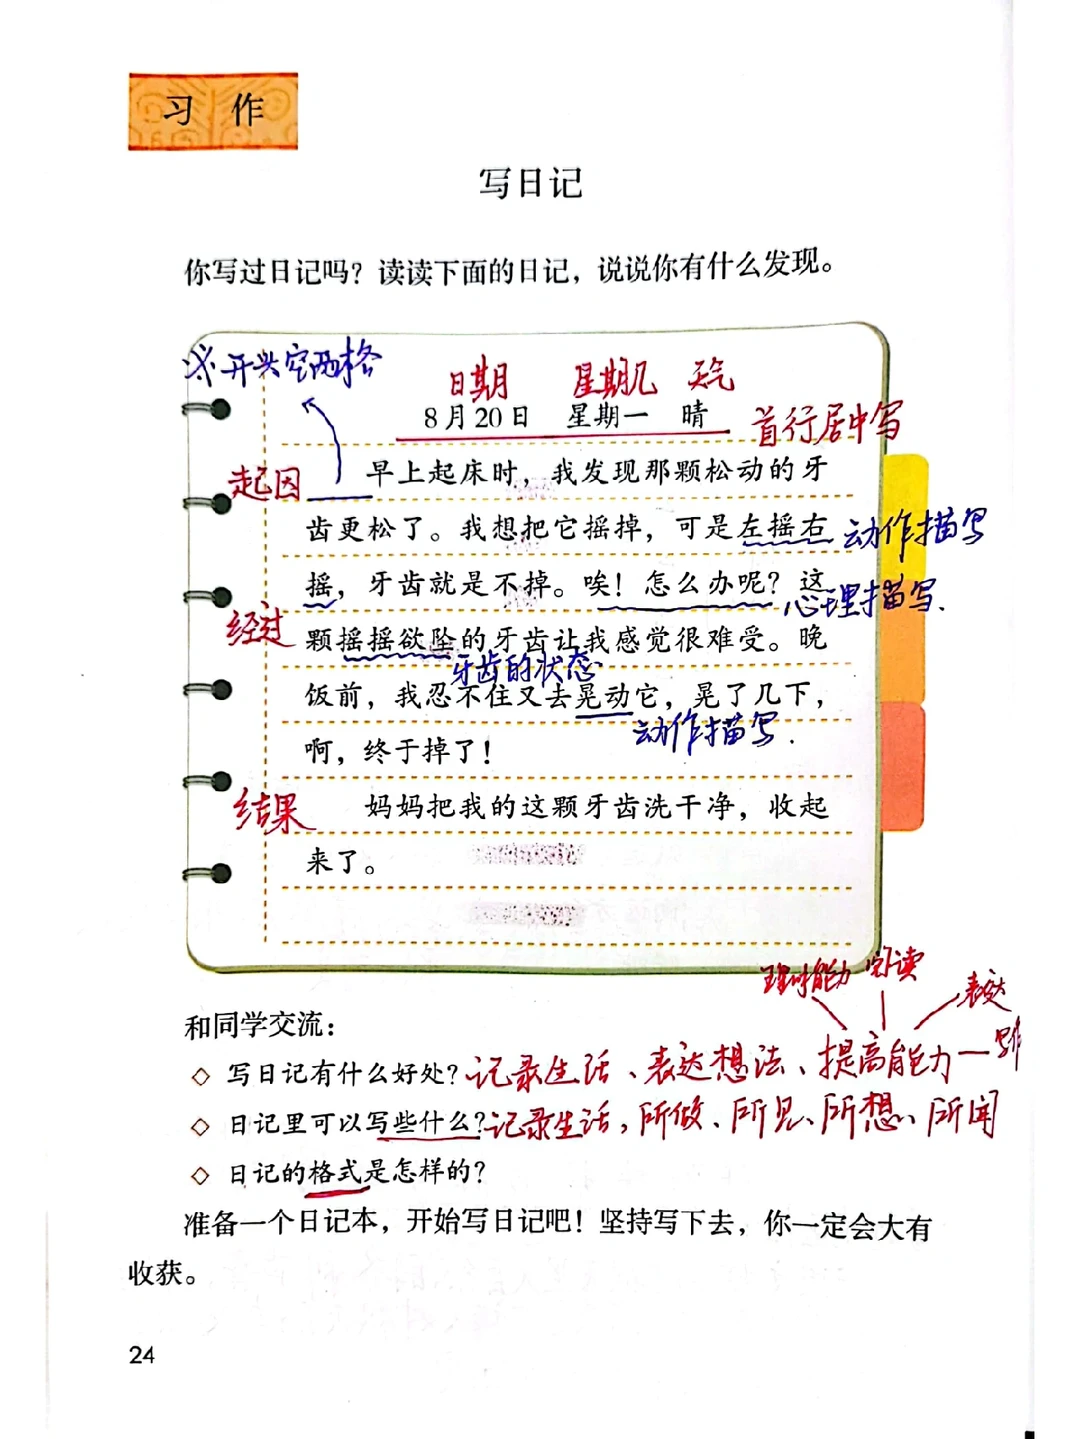 习 作
写日记
你写过日记吗？读读下面的日记，说说你有什么发现。
※开头空两格
日期 星期几 天气
8月20日 星期一 晴
首行居中写
起因
早上起床时，我发现那颗松动的牙
齿更松了。我想把它摇掉，可是左摇右
动作描写
摇，牙齿就是不掉。唉！怎么办呢？这
心理描写.
经过
颗摇摇欲坠的牙齿让我感觉很难受。晚
牙齿的状态
饭前，我忍不住又去晃动它，晃了几下，
动作描写.
啊，终于掉了！
结果
妈妈把我的这颗牙齿洗干净，收起
来了。
阅读
表达
和同学交流：
◇ 写日记有什么好处？记录生活、表达想法、提高能力—写作
◇ 日记里可以写些什么？记录生活，所做、所见、所想、所闻
◇ 日记的格式是怎样的？
准备一个日记本，开始写日记吧！坚持写下去，你一定会大有
收获。
24